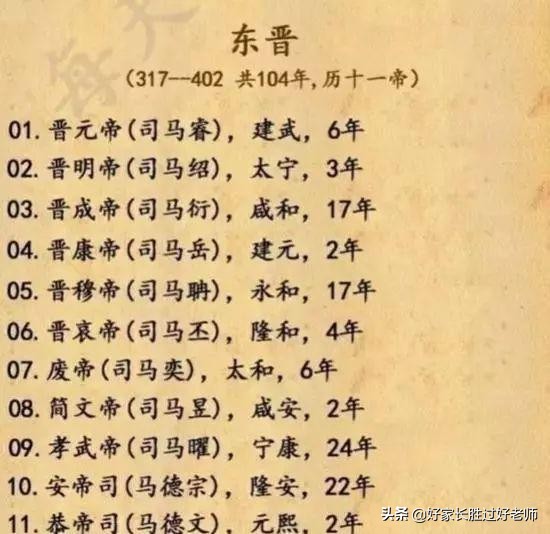 东晋
(317--402 共104年,历十一帝)
01.晋元帝(司马睿), 建武, 6年
02.晋明帝(司马绍), 太宁, 3年
03.晋成帝(司马衍), 咸和, 17年
04.晋康帝(司马岳), 建元, 2年
05.晋穆帝(司马聃), 永和, 17年
06.晋哀帝(司马丕), 隆和, 4年
07.废帝(司马奕), 太和, 6年
08.简文帝(司马昱), 咸安, 2年
09.孝武帝(司马曜), 宁康, 24年
10.安帝司(马德宗), 隆安, 22年
11.恭帝司(马德文), 元熙, 2年
头条 @好家长胜过好老师